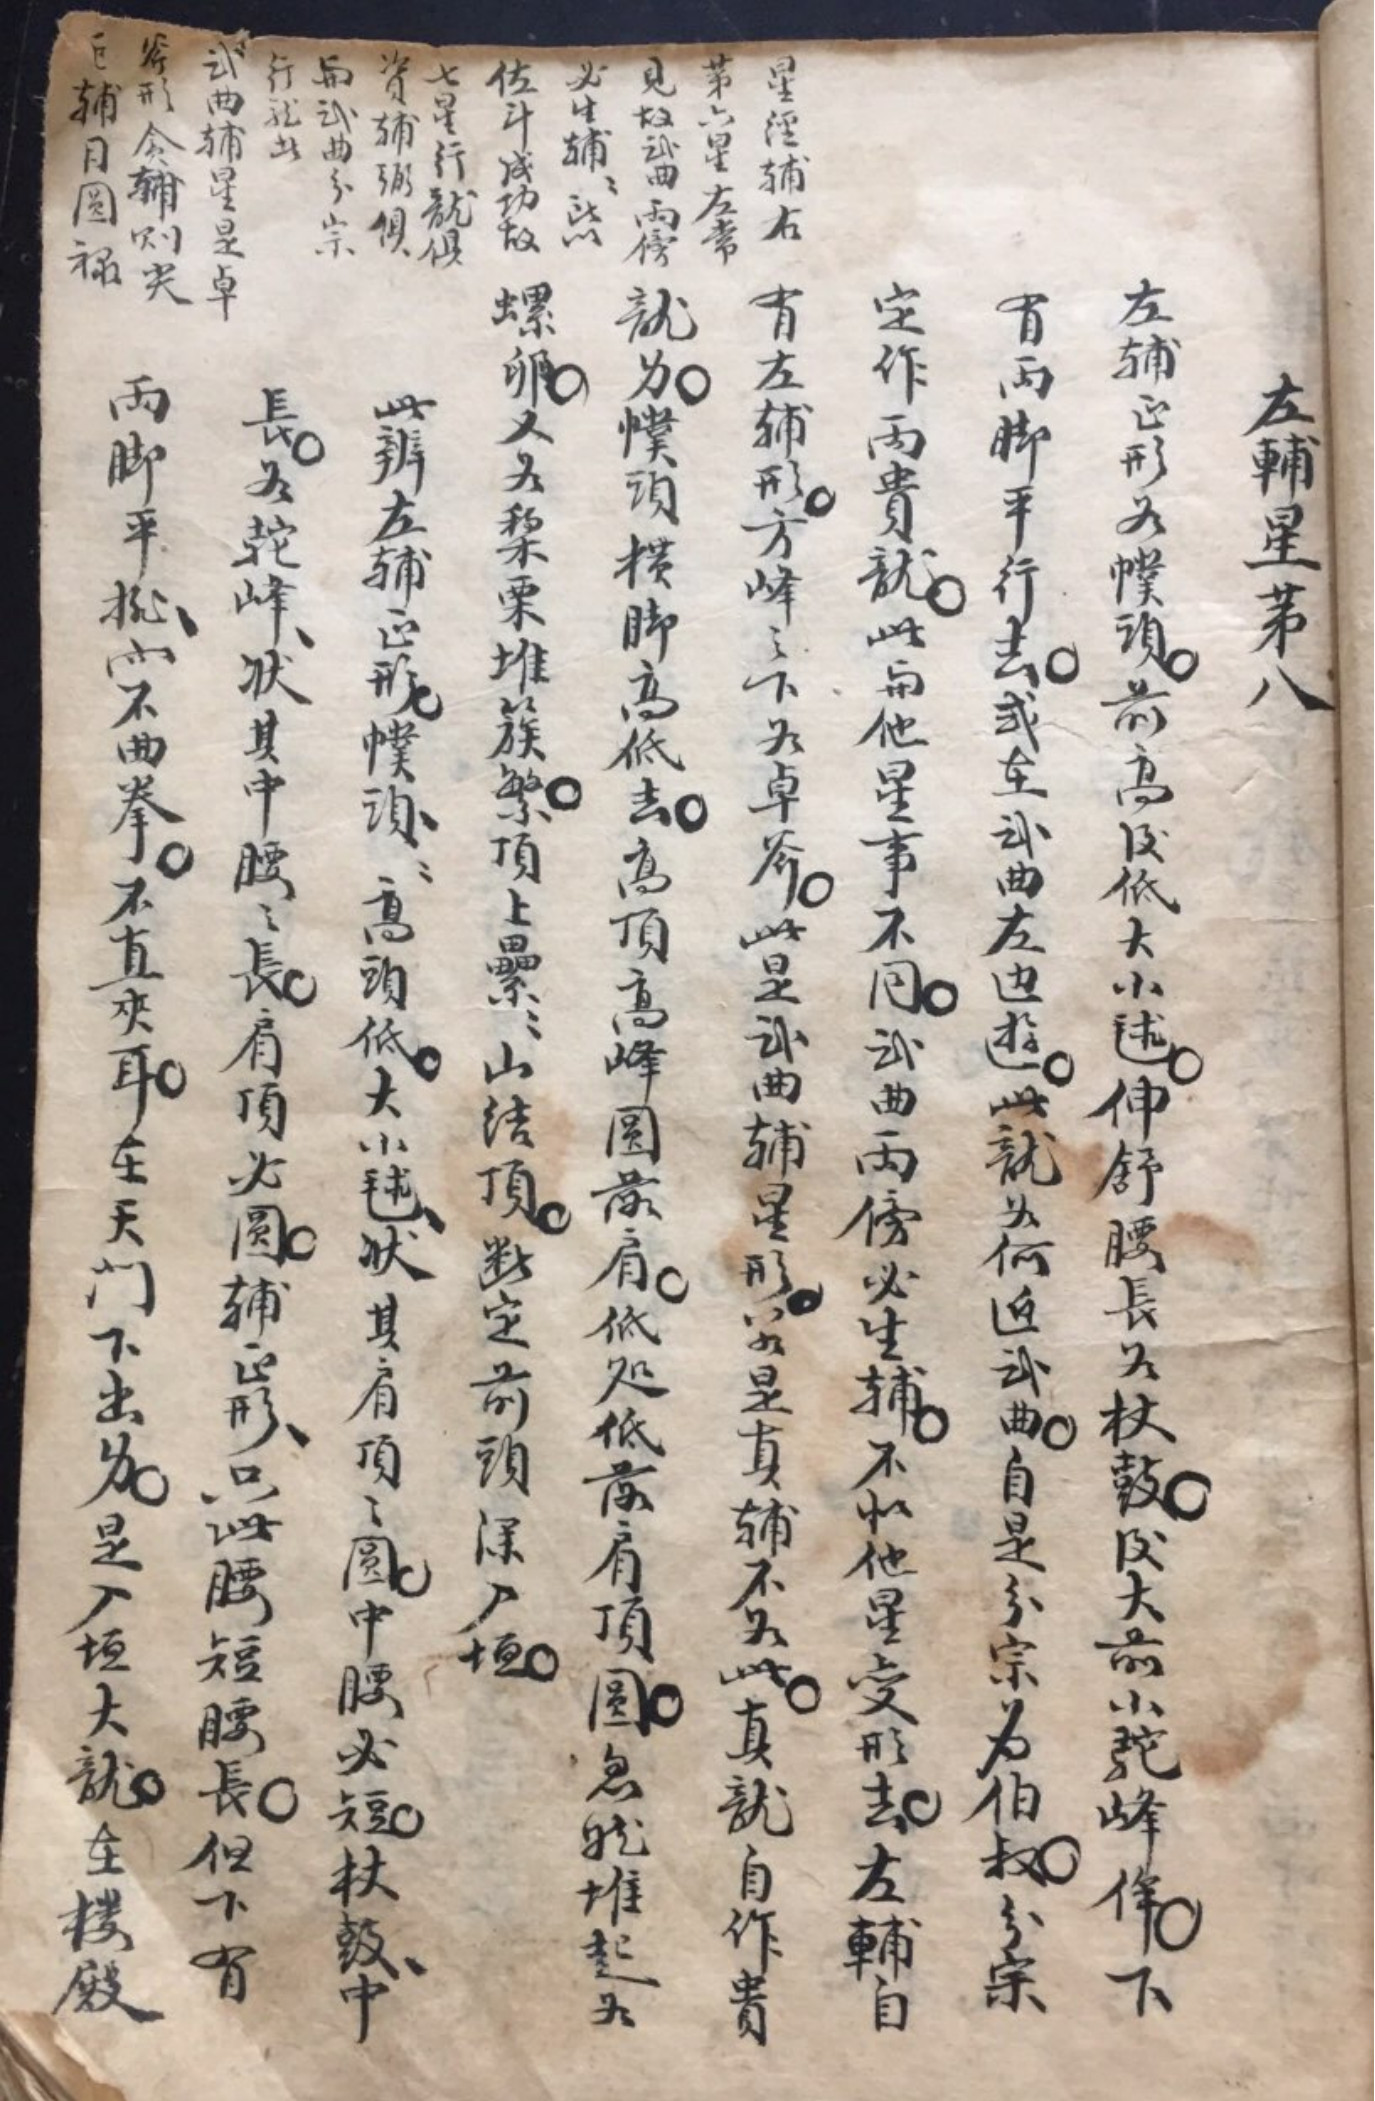 左輔星第八
左辅正形若幞頭前髙后低大小毬伸舒腰長若杖鼓后大前小駝峰侔下
有両脚平行去或在武曲左边遊此龍如何近武曲自是分宗为伯叔分宗
定作両貴龍此与他星事不同武曲両傍必生辅不似他星变形去左輔自
有左辅形方峰之下若卓斧此是武曲辅星形若是真辅不若此真龍自作貴
龍为幞頭横脚高低去高頂高峰圆落肩低処低落肩頂圓忽然堆起若
螺卵又若梨栗堆簇繁頂上纍〻山结頂断定前頭深入垣
此辨左辅正形幞頭〻高頭低大小毬状其肩頂〻圓中腰必短杖鼓中
長若駝峰状其中腰〻長肩頂必圓辅正形只此腰短腰長但下有
両脚平拖而不曲拳不直夹耳在天门下出为是入垣大龍在楼殿
星經辅右
第六星左常
見故武曲両傍
必生辅〻
佐斗成功故
七星行龍俱
資辅弼俱
与武曲分宗
行龍此
武曲辅星是卓
斧形 贪辅则尖
巨辅月圓禄